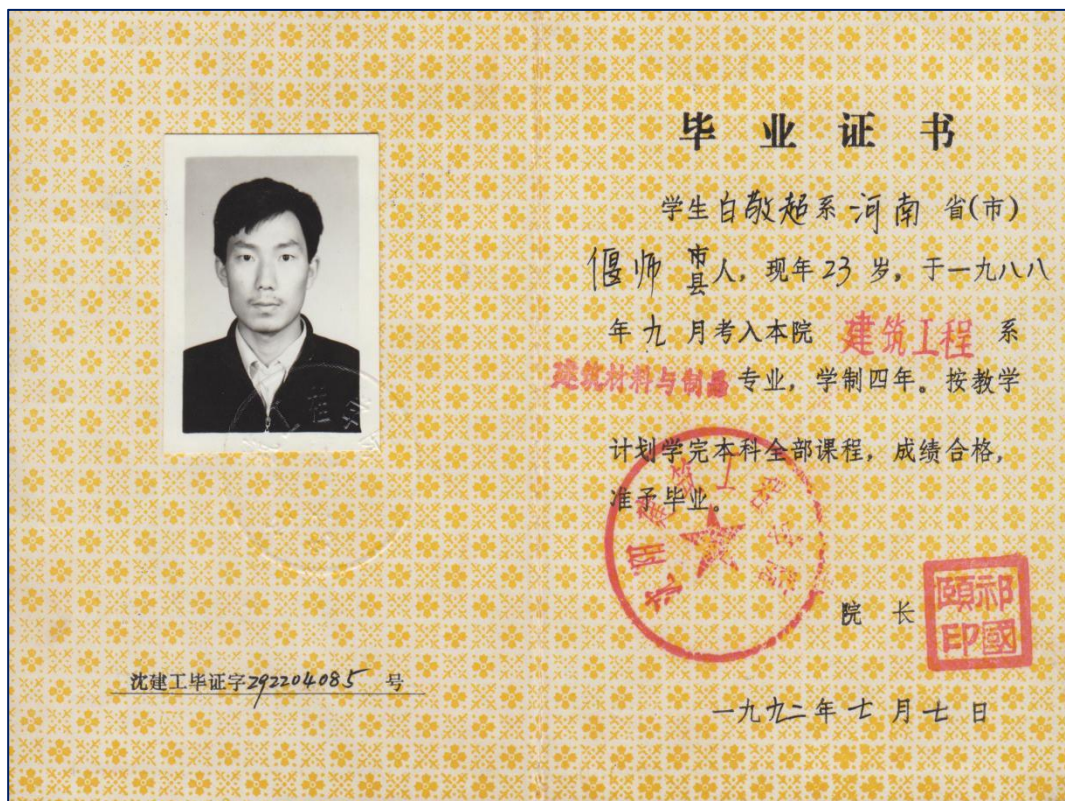 毕业证书
学生白敬超系河南省(市)
偃师市县人，现年23岁，于一九八八
年九月考入本院建筑工程系
建筑材料与制品专业，学制四年。按教学
计划学完本科全部课程，成绩合格，
准予毕业。
沈阳建筑工程学院
院长
祁國頤印
沈建工毕证字292204085号
一九九二年七月七日